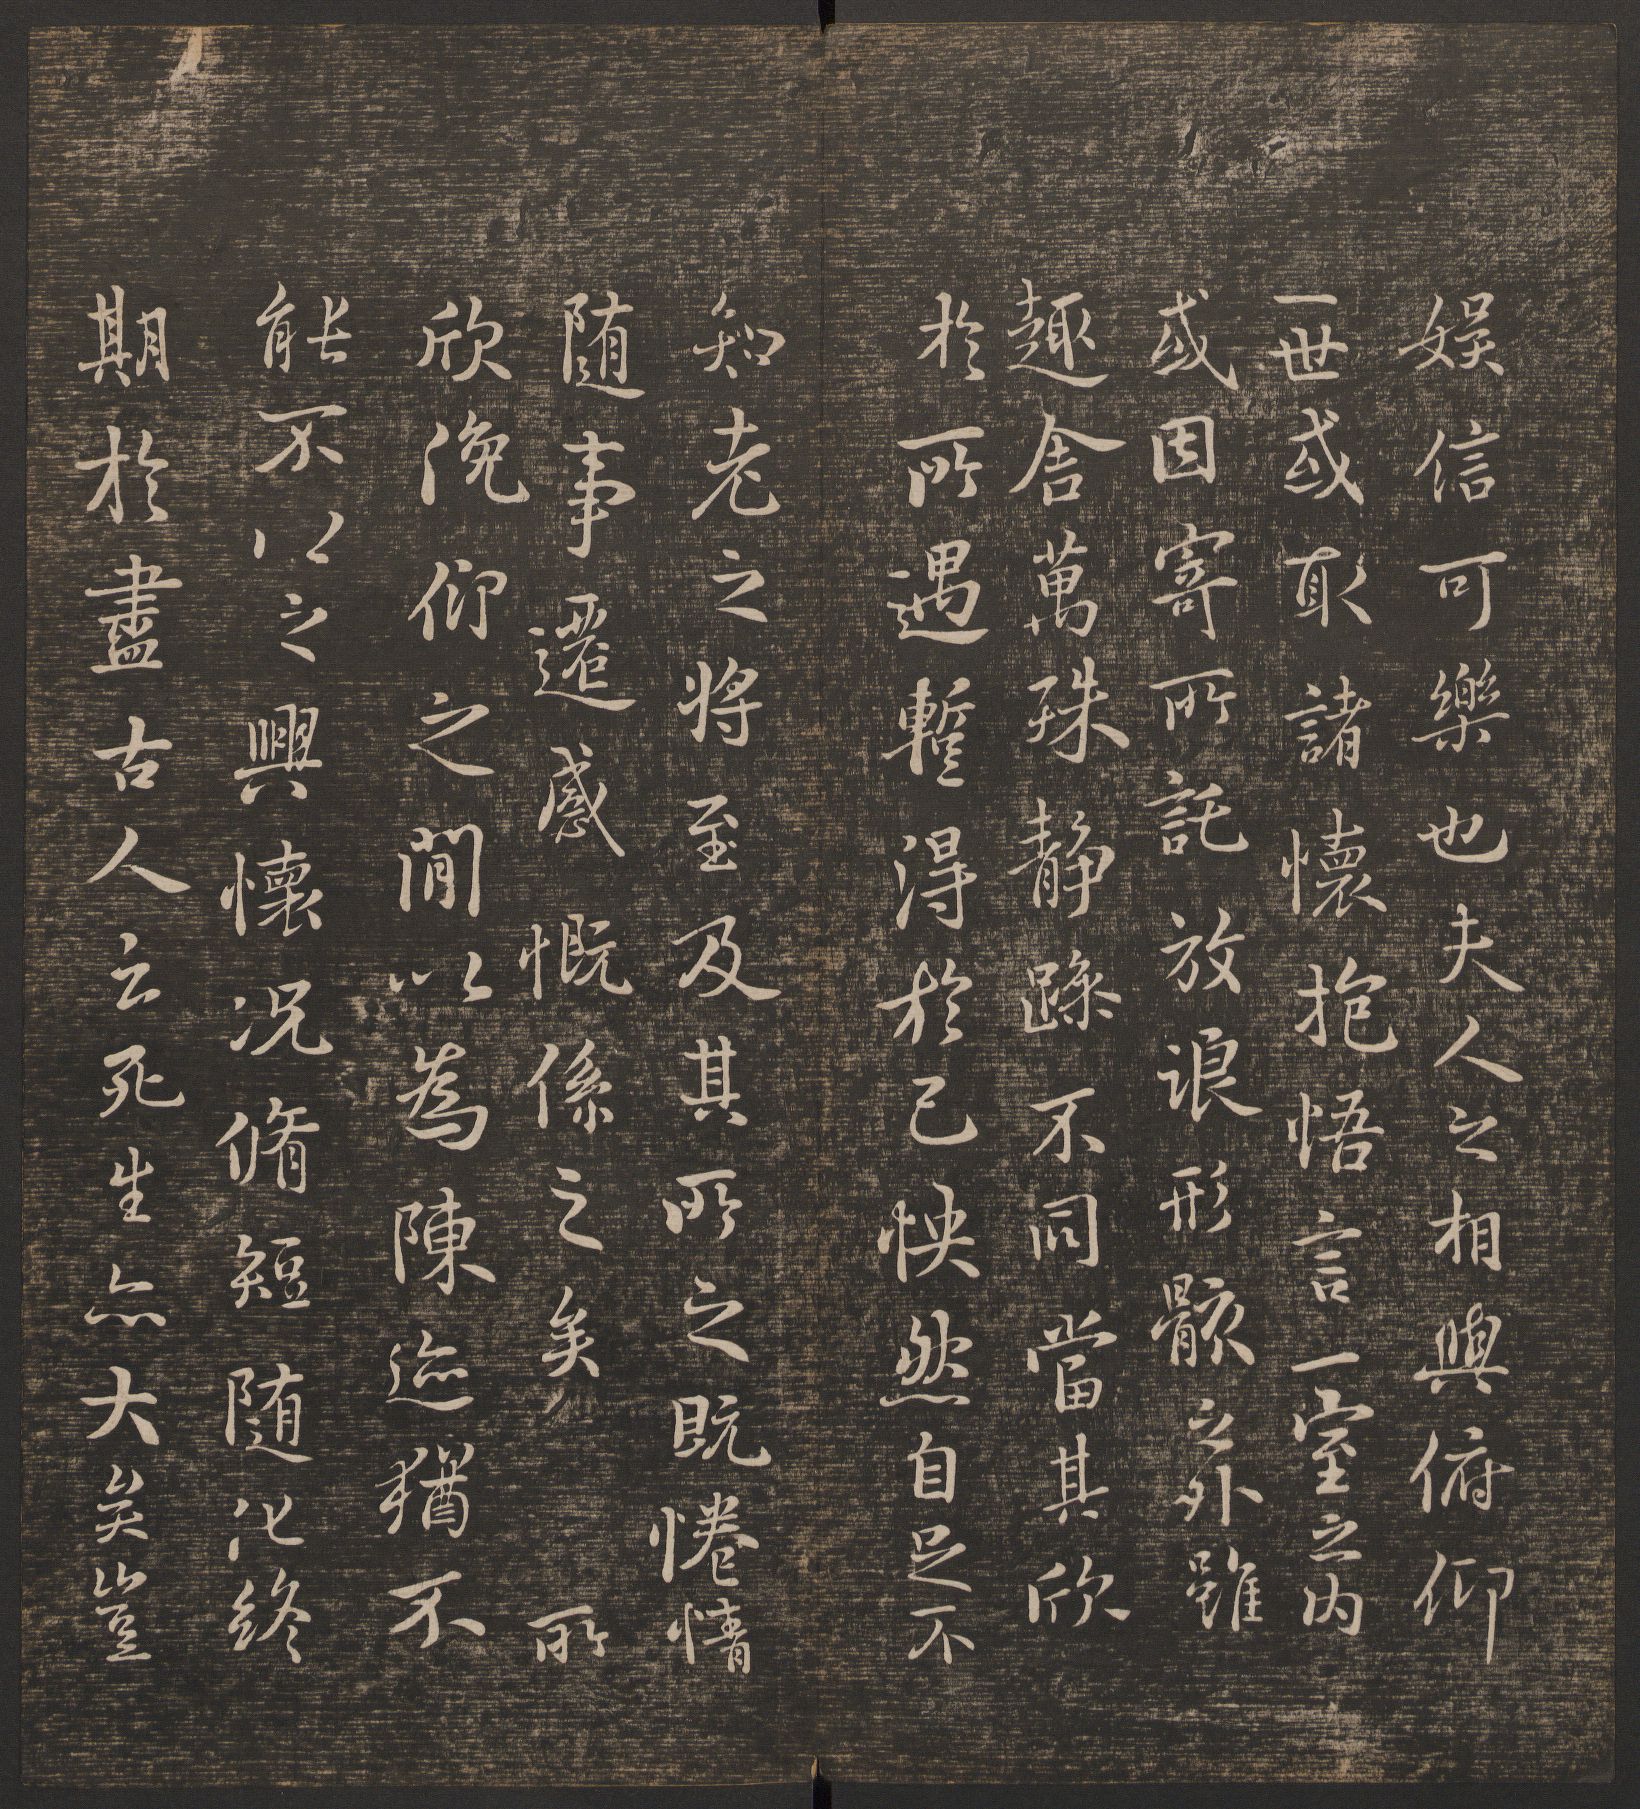 娱信可樂也夫人之相與俯仰
一世或取諸懷抱悟言一室之内
或因寄所託放浪形骸之外雖
趣舎萬殊静躁不同當其欣
於所遇暫得於己怏然自足不
知老之將至及其所之既惓情
随事遷感慨係之矣所
欣俛仰之閒以為陳迹猶不
能不以之興懷况脩短随化終
期於盡古人云死生亦大矣豈